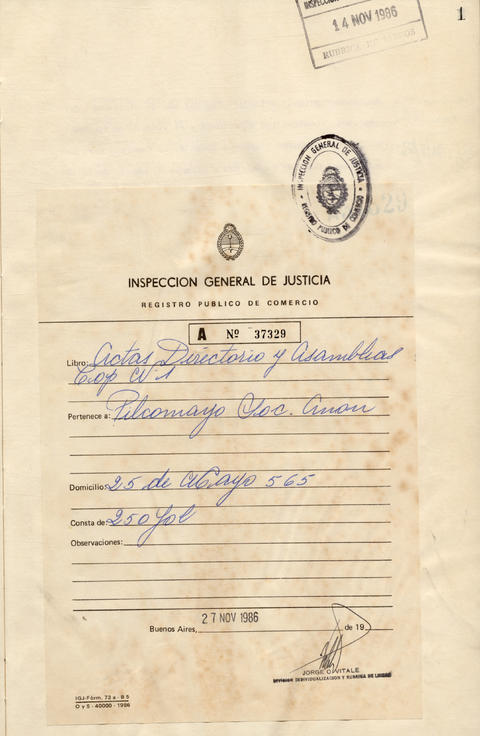 INSPECCION
14 NOV 1986
RUBRICA DE LIBROS
1
INSPECCION GENERAL DE JUSTICIA
REGISTRO PUBLICO DE COMERCIO
INSPECCION GENERAL DE JUSTICIA
REGISTRO PUBLICO DE COMERCIO
A Nº 37329
Libro: Actas Directorio y Asambleas
Cop Nº 1
Pertenece a: Pilcomayo Soc. Anon
Domicilio: 25 de Mayo 565
Consta de: 250 fol
Observaciones:
27 NOV 1986
Buenos Aires, de 19
JORGE O. VITALE
DIVISION INDIVIDUALIZACION Y RUBRICA DE LIBROS
IGJ-Fórm. 73 a - B 5
O y S - 40000 - 1986